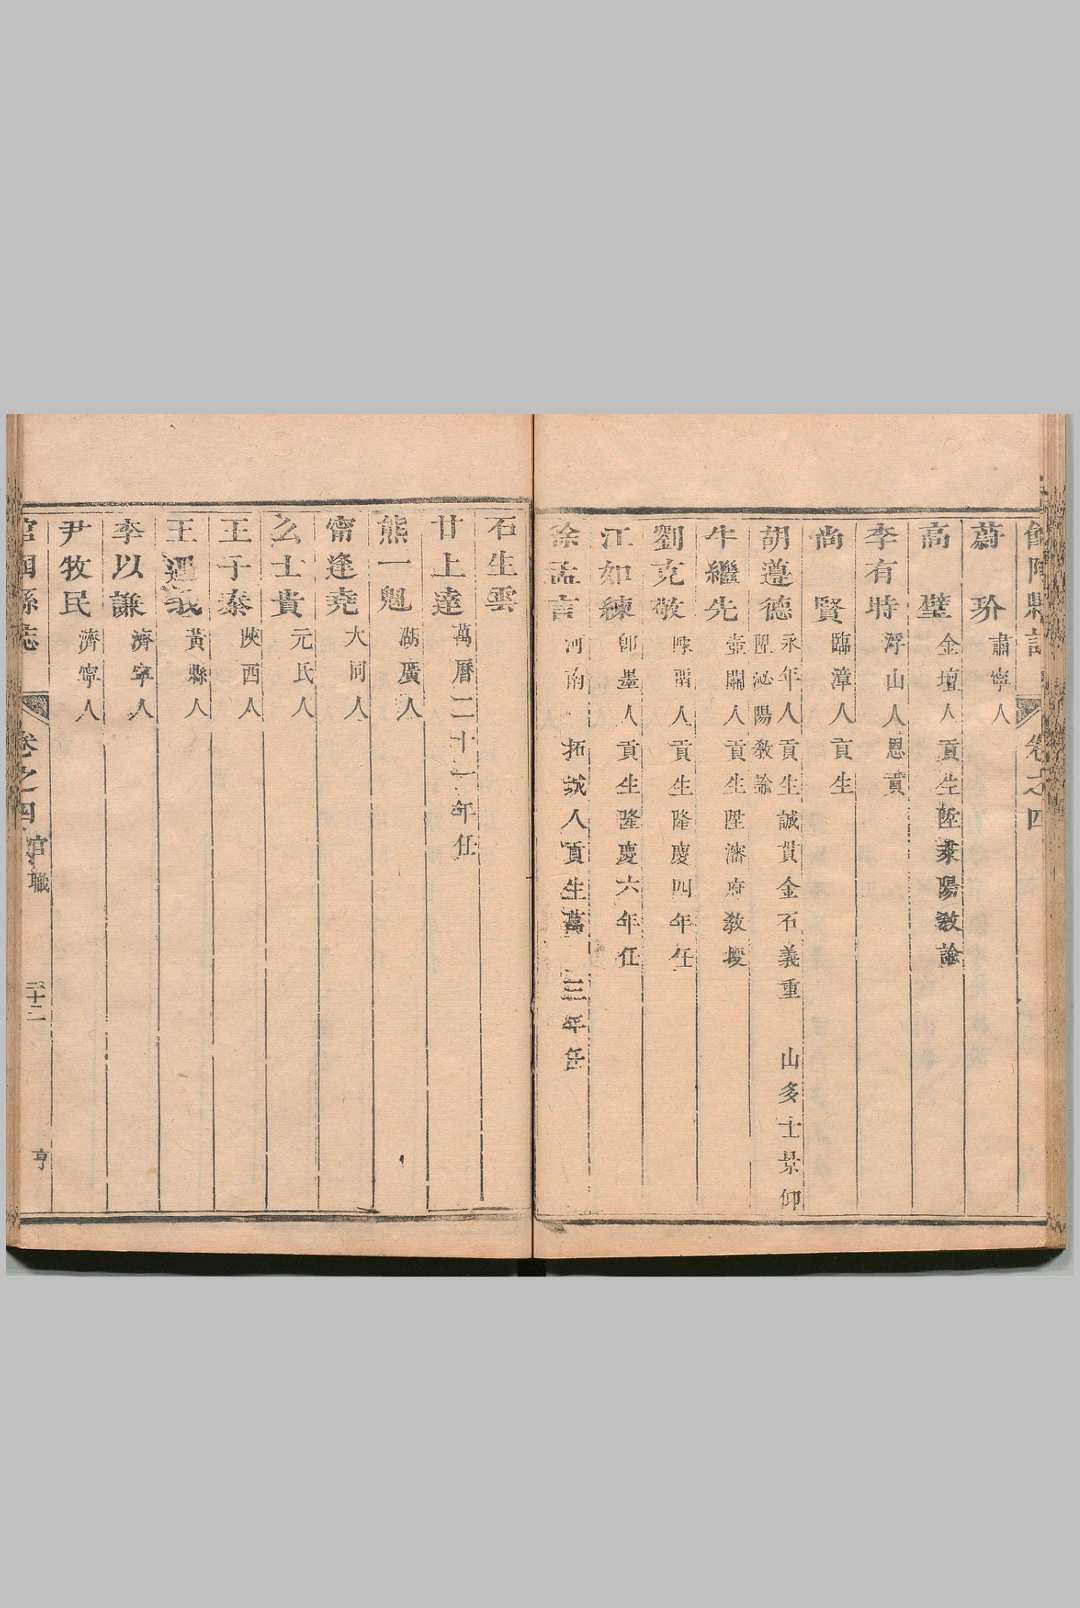 館陶縣誌 卷之四
蔚玠 肅寧人
高璧 金壇人貢生陞耒陽教諭
李有時 浮山人恩貢
尚賢 臨漳人貢生
胡遵德 永年人貢生誠貫金石義重 山多士景仰
陞沁陽教諭
牛繼先 壺關人貢生陞瀋府教授
劉克敬 陝西人貢生隆慶四年任
江如練 即墨人貢生隆慶六年任
徐孟言 河南 拓城人貢生萬 三年任
石生雲
甘上達 萬曆二十一年任
熊一魁 湖廣人
甯逢堯 大同人
么士貴 元氏人
王于泰 陝西人
王遇 黃縣人
李以謙 濟寧人
尹牧民 濟寧人
館陶縣誌 卷之四 官職 二十二 亨